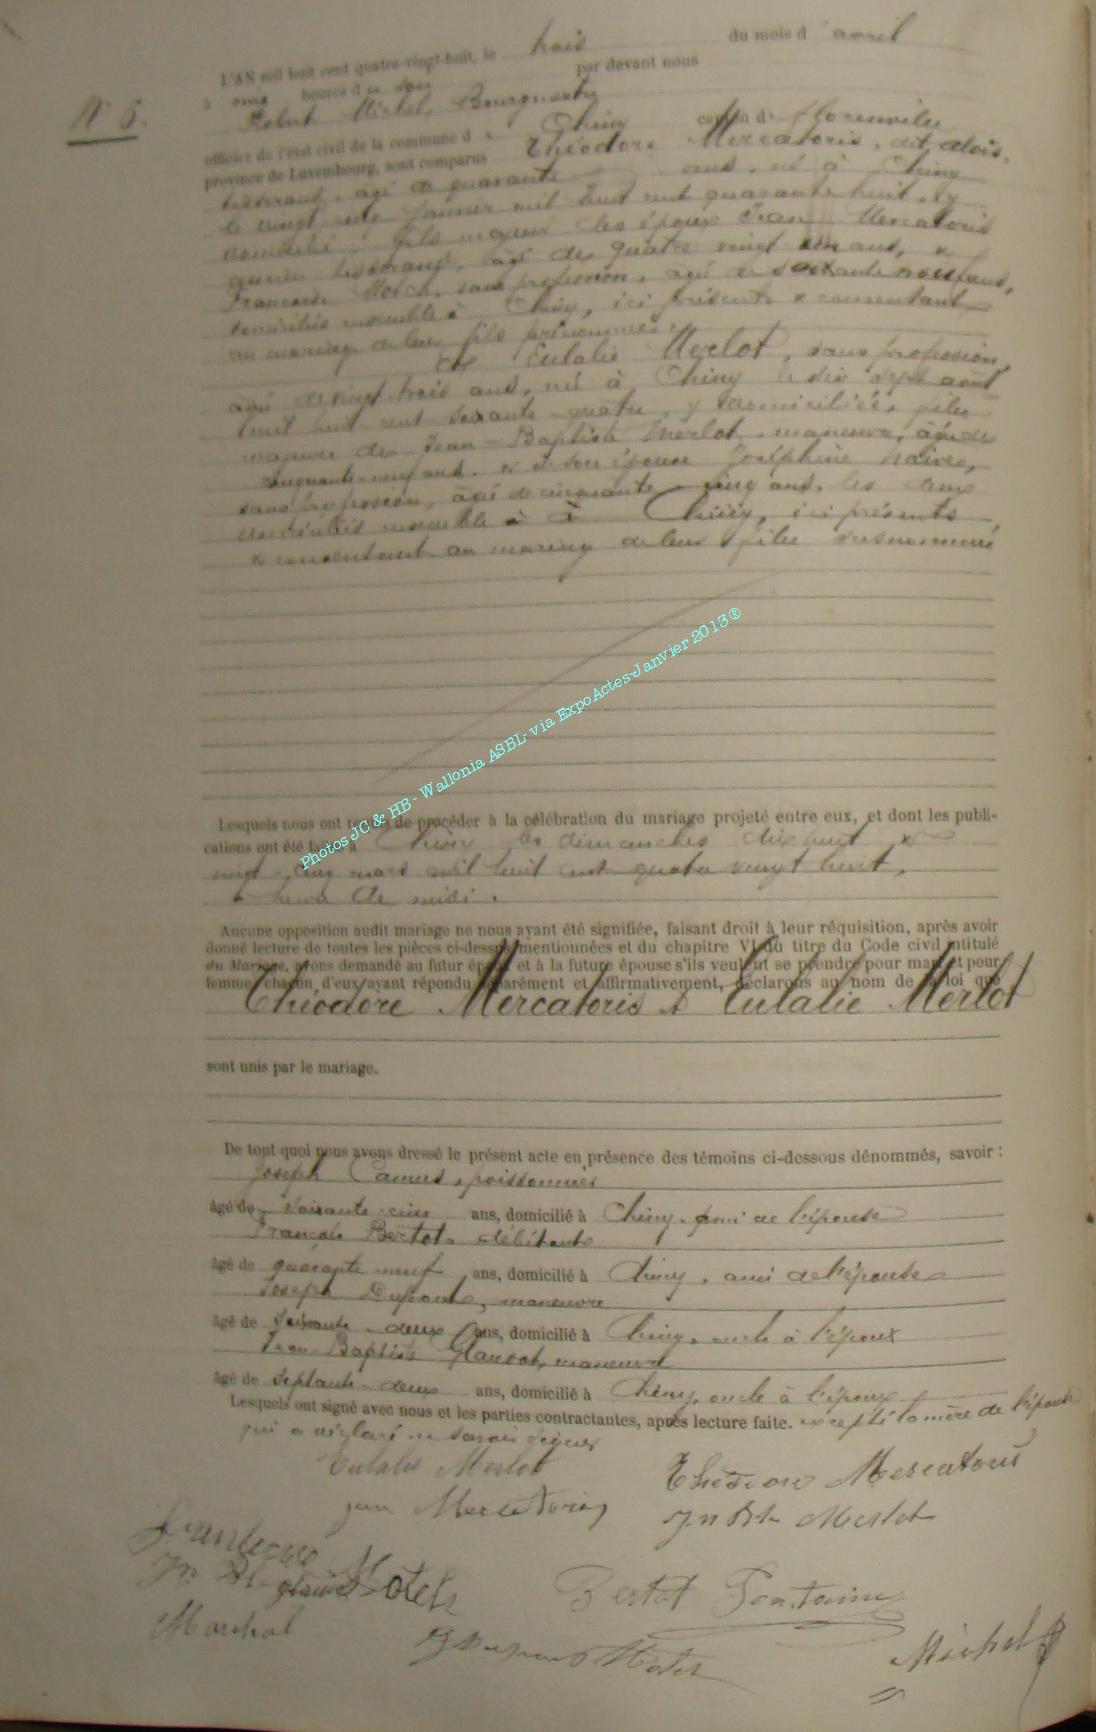 N° 6.
L'AN mil huit cent quatre-vingt-huit, le trois du mois d'avril
à onze heures d par devant nous
Robert Michel, Bourgmestre
officier de l'état civil de la commune d Chiny canton de florenville
province de Luxembourg, sont comparus Théodore Mercatoris, dit alois,
tisserand, agé de quarante ans, né à Chiny
le vingt janvier mil huit cent quarante huit, y
domicilié, fils majeur des époux Jean Mercatoris
tisserand, agé de quatre vingt ans, &
Françoise, sans profession, agée de soixante neuf ans,
domiciliés ensemble à Chiny, ici présents & consentant
au mariage de leur fils prénommé.
Et Eulalie Merlot, sans profession,
agée de vingt trois ans, née à Chiny le dix sept août
huit cent soixante quatre, y domiciliée, fille
majeure de Jean-Baptiste Merlot, maneuvre, âgé de
cinquante-neuf ans & de son épouse Joséphine
sans profession, âgée de cinquante cinq ans, les deux
domiciliés ensemble à Chiny, ici présents
& consentant au mariage de leur fille susnommée
Photos JC & HB - Wallonia ASBL- via ExpoActes-Janvier 2013®
Lesquels nous ont de procéder à la célébration du mariage projeté entre eux, et dont les publi-
cations ont été à Chiny les dimanches dix huit &
vingt cinq mars mil huit cent quatre vingt huit,
à heure de midi.
Aucune opposition audit mariage ne nous ayant été signifiée, faisant droit à leur réquisition, après avoir
donné lecture de toutes les pièces ci-dessus mentionnées et du chapitre VI du titre du Code civil intitulé
du Mariage, avons demandé au futur époux et à la future épouse s'ils veulent se prendre pour mari et pour
femme; chacun d'eux ayant répondu séparément et affirmativement, déclarons au nom de la loi que
Théodore Mercatoris & Eulalie Merlot
sont unis par le mariage.
De tout quoi nous avons dressé le présent acte en présence des témoins ci-dessous dénommés, savoir :
Joseph Camus, poissonnier
âgé de soixante ans, domicilié à Chiny, ami de l'épouse
François Bertot, débitant
âgé de quarante neuf ans, domicilié à Chiny, ami de l'épouse
Joseph Dupont, maneuvre
âgé de soixante-deux ans, domicilié à Chiny, oncle à l'époux
Jean Baptiste, maneuvre
âgé de septante-deux ans, domicilié à Chiny, oncle à l'époux
Lesquels ont signé avec nous et les parties contractantes, après lecture faite. excepté la mère de l'épouse
qui a déclaré ne savoir signer
Eulalie Merlot Théodore Mercatoris
jean Mercatoris Jn Bte Merlot
Bertot Fontaine
Marchal
Michel